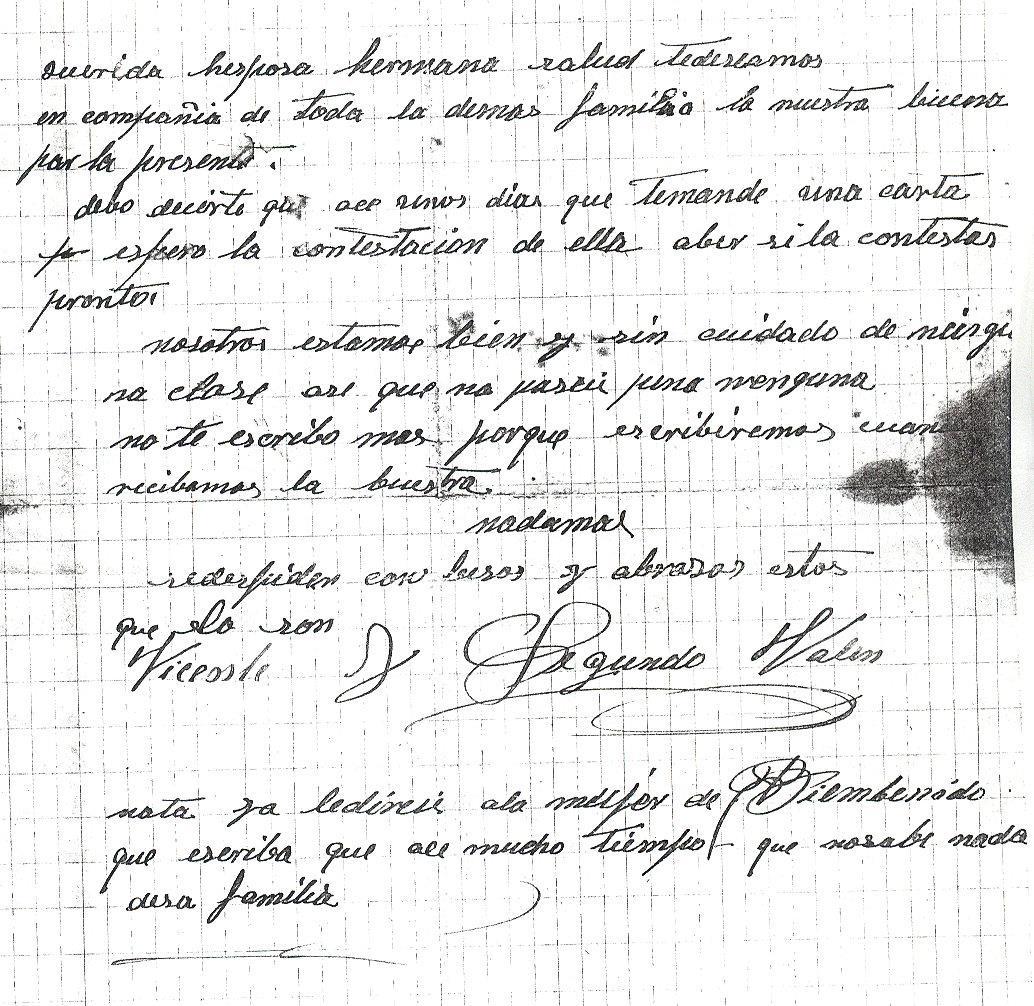 querida hesposa hermana salud tedeseamos
en compañia de toda la demas familia la nuestra buena
por la presente.
debo decirte que ace unos dias que temande una carta
y espero la contestacion de ella aber si la contestas
pronto.
nosotros estamos bien y sin cuidado de ningu
na clase asi que no paseis pena nenguna
no te escribo mas porque escribiremos cuan
recibamos la buestra.
nadamas
sedespiden con besos y abrasos estos
que lo son
Vicente y Segundo Valen
nota ya ledireis ala mujer de Biembenido
que escriba que ace mucho tiempo que nosabe nada
desa familia